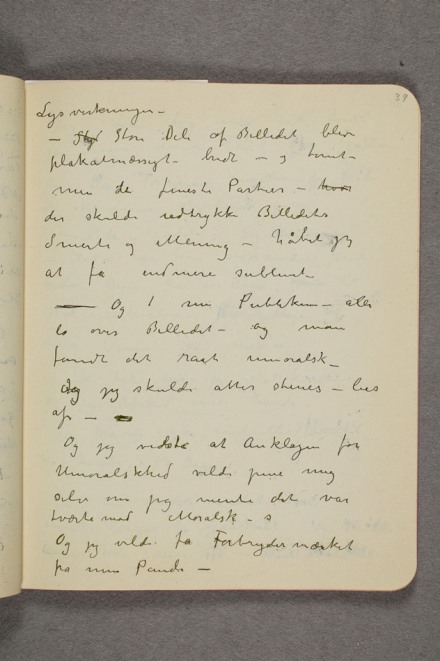 39
Lysvirkninger –
– Store Dele af Billedet blev
plakatmæssigt – bredt – og tomt –
men de fineste Partier –
der skulde udtrykke Billedets
Smerte og Mening – håbet jeg
at få endmere sublimt
– Og min Publikum – alle
lo over Billedet – og man
fandt det raat umoralsk –
Og jeg skulde atter stenes –
Og jeg vidste at Anklagen for
Umoralskhed vilde pine mig
selv om jeg mente det var
tværtemod Moralsk –
Og jeg vilde få Forbrydermærket
på min Pande –